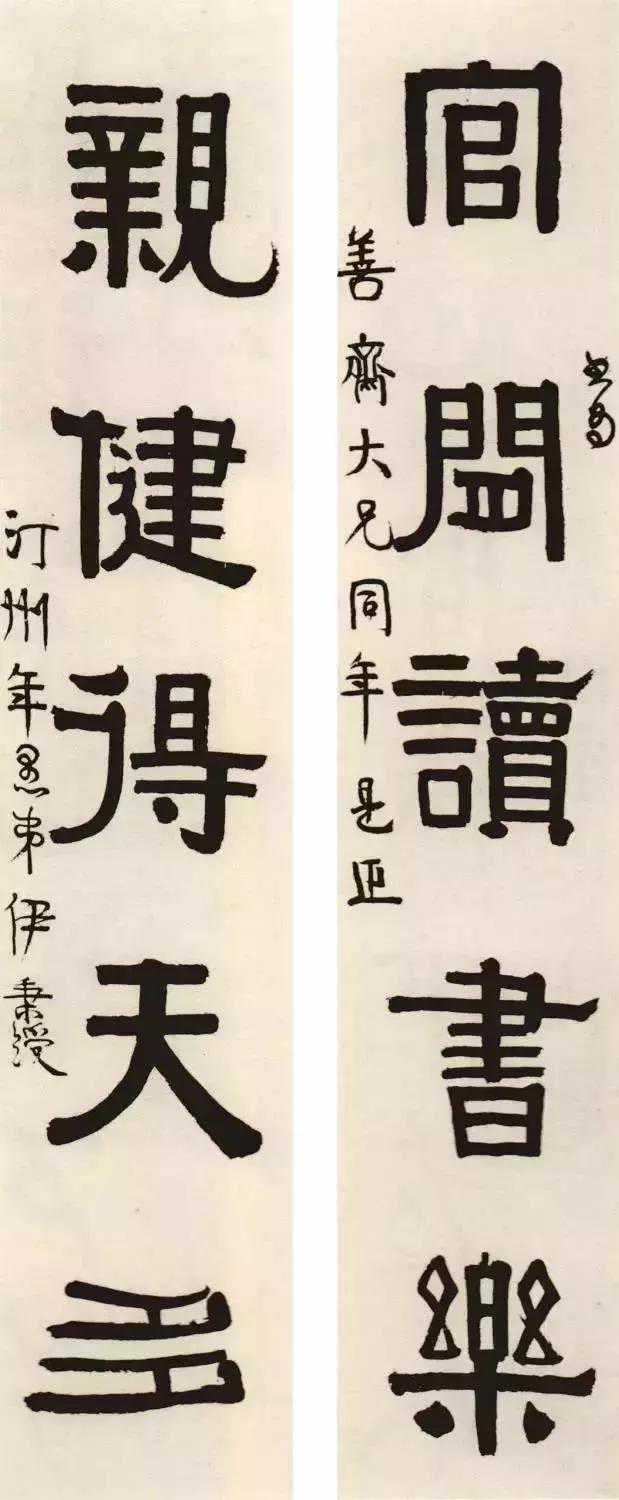 書為
官閒讀書樂
善齋大兄同年是正
親健得天多
汀州年愚弟伊秉綬